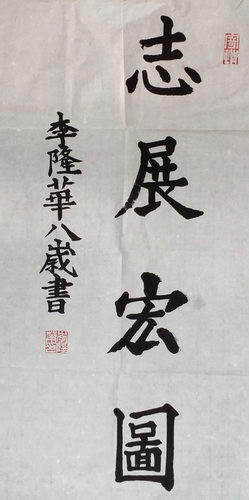 志展宏圖
李隆華八歲書